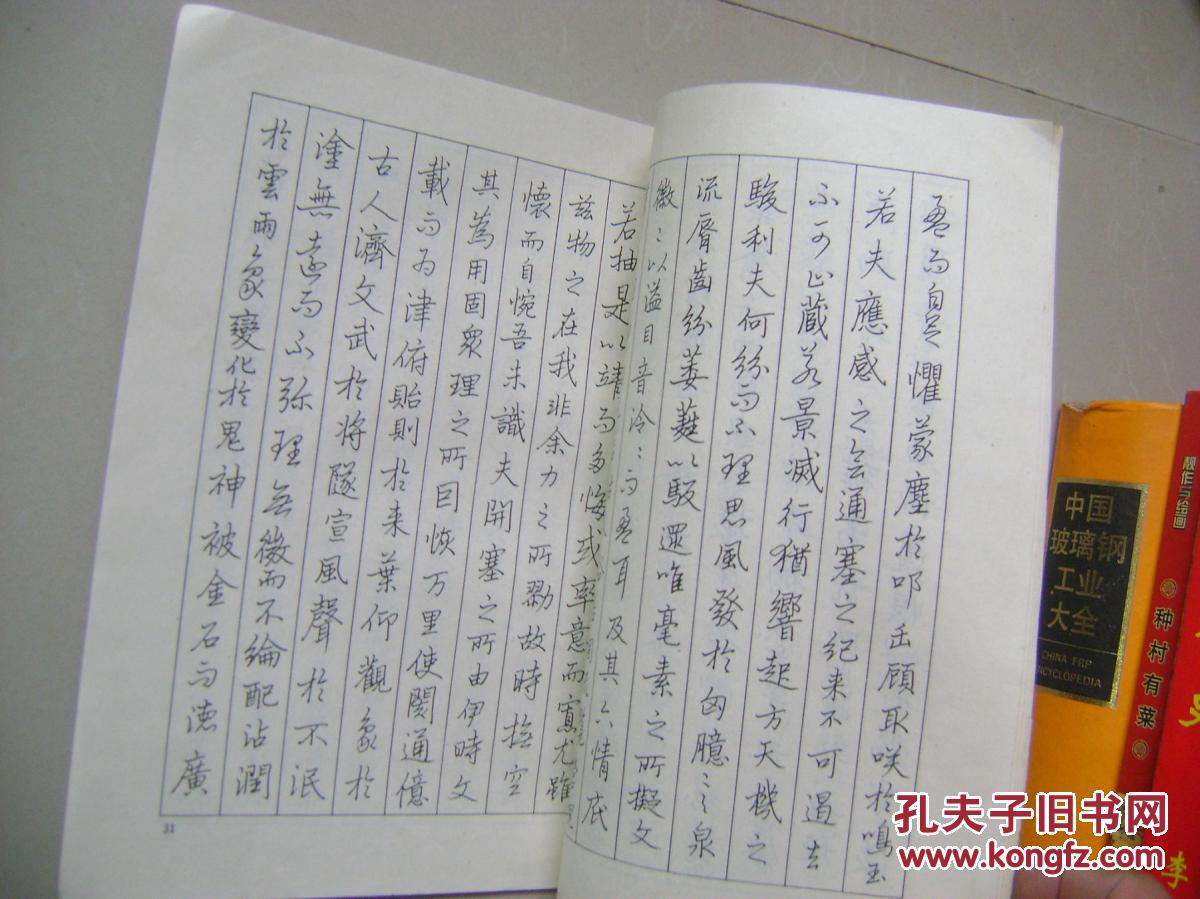 盈而自足懼蒙塵於叩缶顧取咲於鳴玉
若夫應感之會通塞之紀来不可遏去
不可止藏若景滅行猶響起方天機之
駿利夫何紛而不理思風發於匈臆言泉
流脣齒紛萎蕤以馺遝唯毫素之所擬文
徽〻以溢目音泠〻而盈耳及其六情底
若抽是以靖而多悔或率意而寡尤雖
兹物之在我非余力之所勠故時撫空
懷而自惋吾未識夫開塞之所由伊時文
其為用固衆理之所因恢万里使閡通億
載而為津俯貽則於来葉仰觀象於
古人濟文武於將隧宣風聲於不泯
塗無遠而不弥理無微而不綸配沾潤
於雲雨象變化於鬼神被金石而德廣
31
中国
玻璃钢
工业
大全
CHINA FRP
ENCYCLOPEDIA
种村有菜
李
孔夫子旧书网
www.kongfz.com